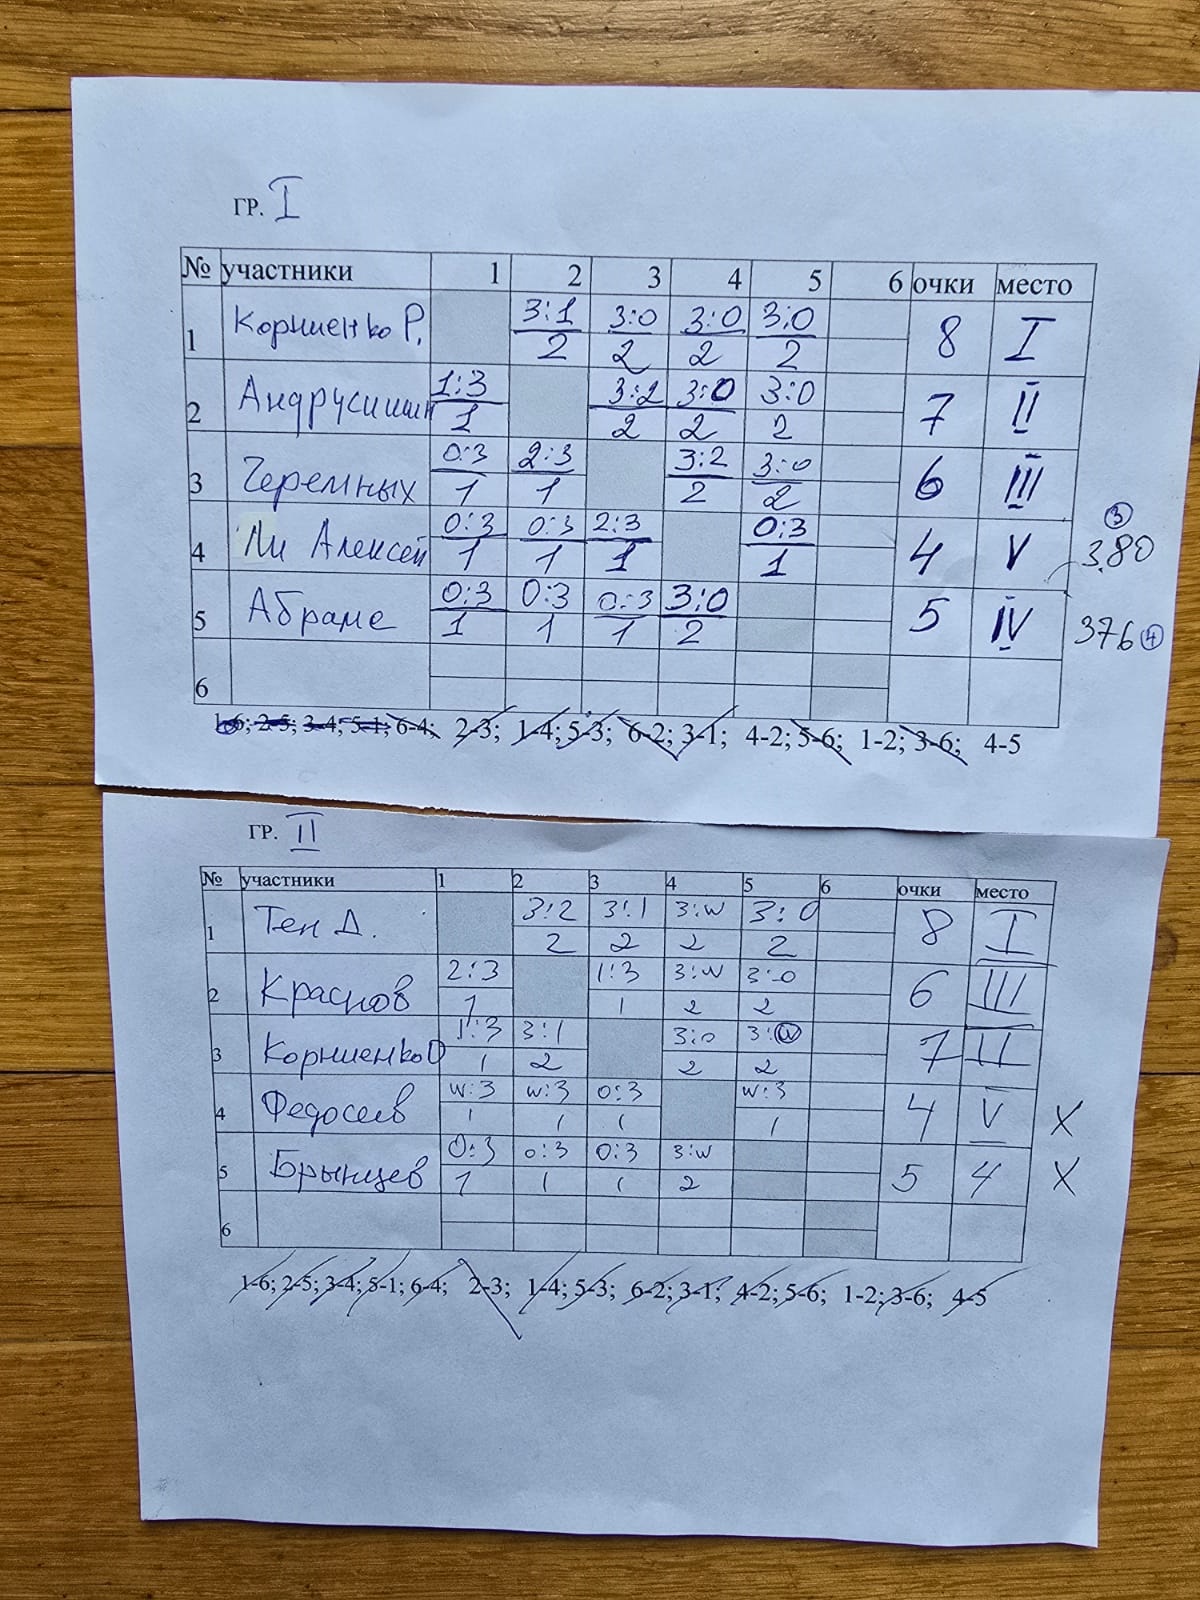 гр. I
№ участники 1 2 3 4 5 6 очки место
1 Корниенко Р. 3:1 3:0 3:0 3:0 8 I
2 2 2 2
2 Андрусишин 1:3 3:2 3:0 3:0 7 II
1 2 2 2
3 Черемных 0:3 2:3 3:2 3:0 6 III
1 1 2 2
4 Ли Алексей 0:3 0:3 2:3 0:3 4 V 3.80 ③
1 1 1 1
5 Абраме 0:3 0:3 0:3 3:0 5 IV 376 ④
1 1 1 2
6
1-6; 2-5; 3-4; 5-1; 6-4; 2-3; 1-4; 5-3; 6-2; 3-1; 4-2; 5-6; 1-2; 3-6; 4-5
гр. II
№ участники 1 2 3 4 5 6 очки место
1 Тен Д. 3:2 3:1 3:w 3:0 8 I
2 2 2 2
2 Краснов 2:3 1:3 3:w 3:0 6 III
1 1 2 2
3 Корниенко О 1:3 3:1 3:0 3:w 7 II
1 2 2 2
4 Федосеев w:3 w:3 0:3 w:3 4 V X
1 1 1 1
5 Брынцев 0:3 0:3 0:3 3:w 5 4 X
1 1 1 2
6
1-6; 2-5; 3-4; 5-1; 6-4; 2-3; 1-4; 5-3; 6-2; 3-1; 4-2; 5-6; 1-2; 3-6; 4-5